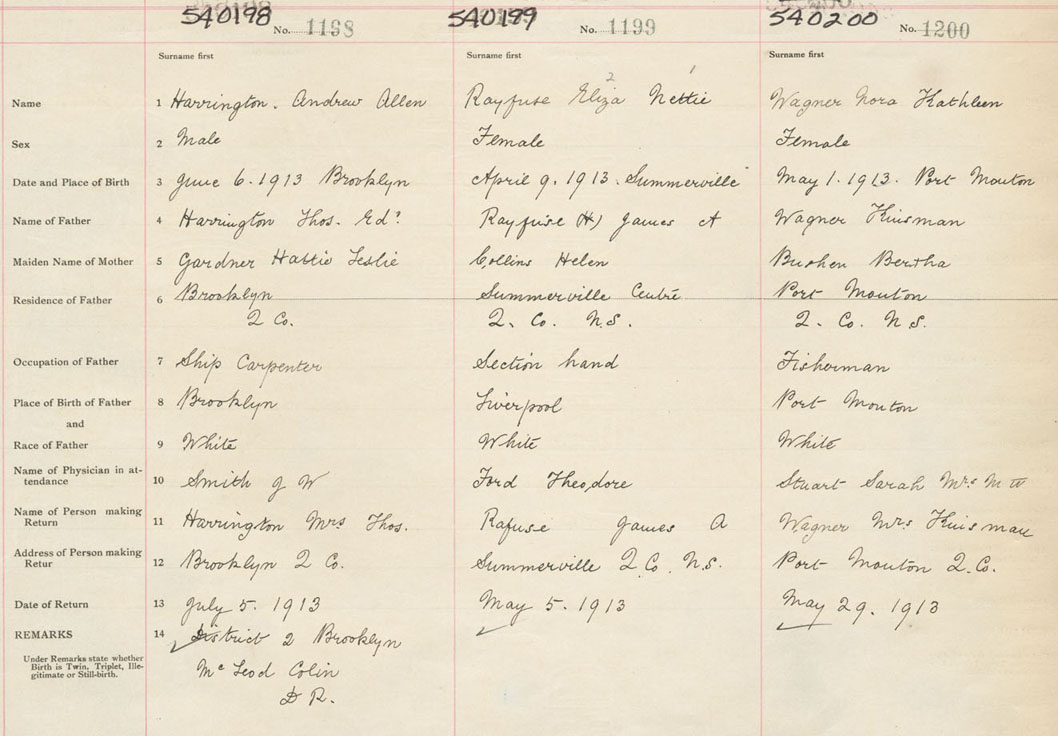 540198 No. 1198 540199 No. 1199 540200 No. 1200
Surname first Surname first Surname first
2 1
Name 1 Harrington. Andrew Allen Rayfuse Eliza Nettie Wagner Nora Kathleen
Sex 2 Male Female Female
Date and Place of Birth 3 June 6. 1913 Brooklyn April 9. 1913. Summerville May 1. 1913. Port Mouton
Name of Father 4 Harrington Thos. Ed? Rayfuse (H) James A Wagner Kinsman
Maiden Name of Mother 5 Gardner Hattie Leslie Collins Helen Bushen Bertha
Residence of Father 6 Brooklyn Summerville Centre Port Mouton
Q Co. Q. Co. N.S. Q. Co. N.S.
Occupation of Father 7 Ship Carpenter Section hand Fisherman
Place of Birth of Father 8 Brooklyn Liverpool Port Mouton
and
Race of Father 9 White White White
Name of Physician in at-
tendance 10 Smith J W Ford Theodore Stuart Sarah Mrs M W
Name of Person making
Return 11 Harrington Mrs Thos. Rafuse James A Wagner Mrs Kinsman
Address of Person making
Retur 12 Brooklyn Q Co. Summerville Q Co. N.S. Port Mouton Q. Co.
Date of Return 13 July 5. 1913 May 5. 1913 May 29. 1913
REMARKS 14 District 2 Brooklyn
Under Remarks state whether
Birth is Twin, Triplet, Ille-
gitimate or Still-birth.
Mc Leod Colin
D R.